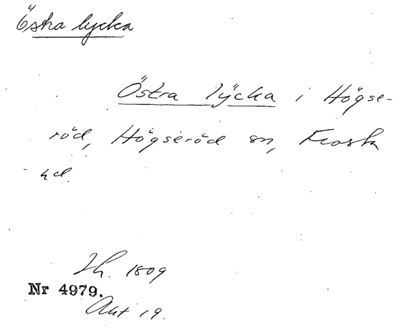 Östra lycka
Östra lycka i Högse-
röd, Högseröd sn, Frosta
hd.
Sk. 1809
Nr 4979.
Akt 19.